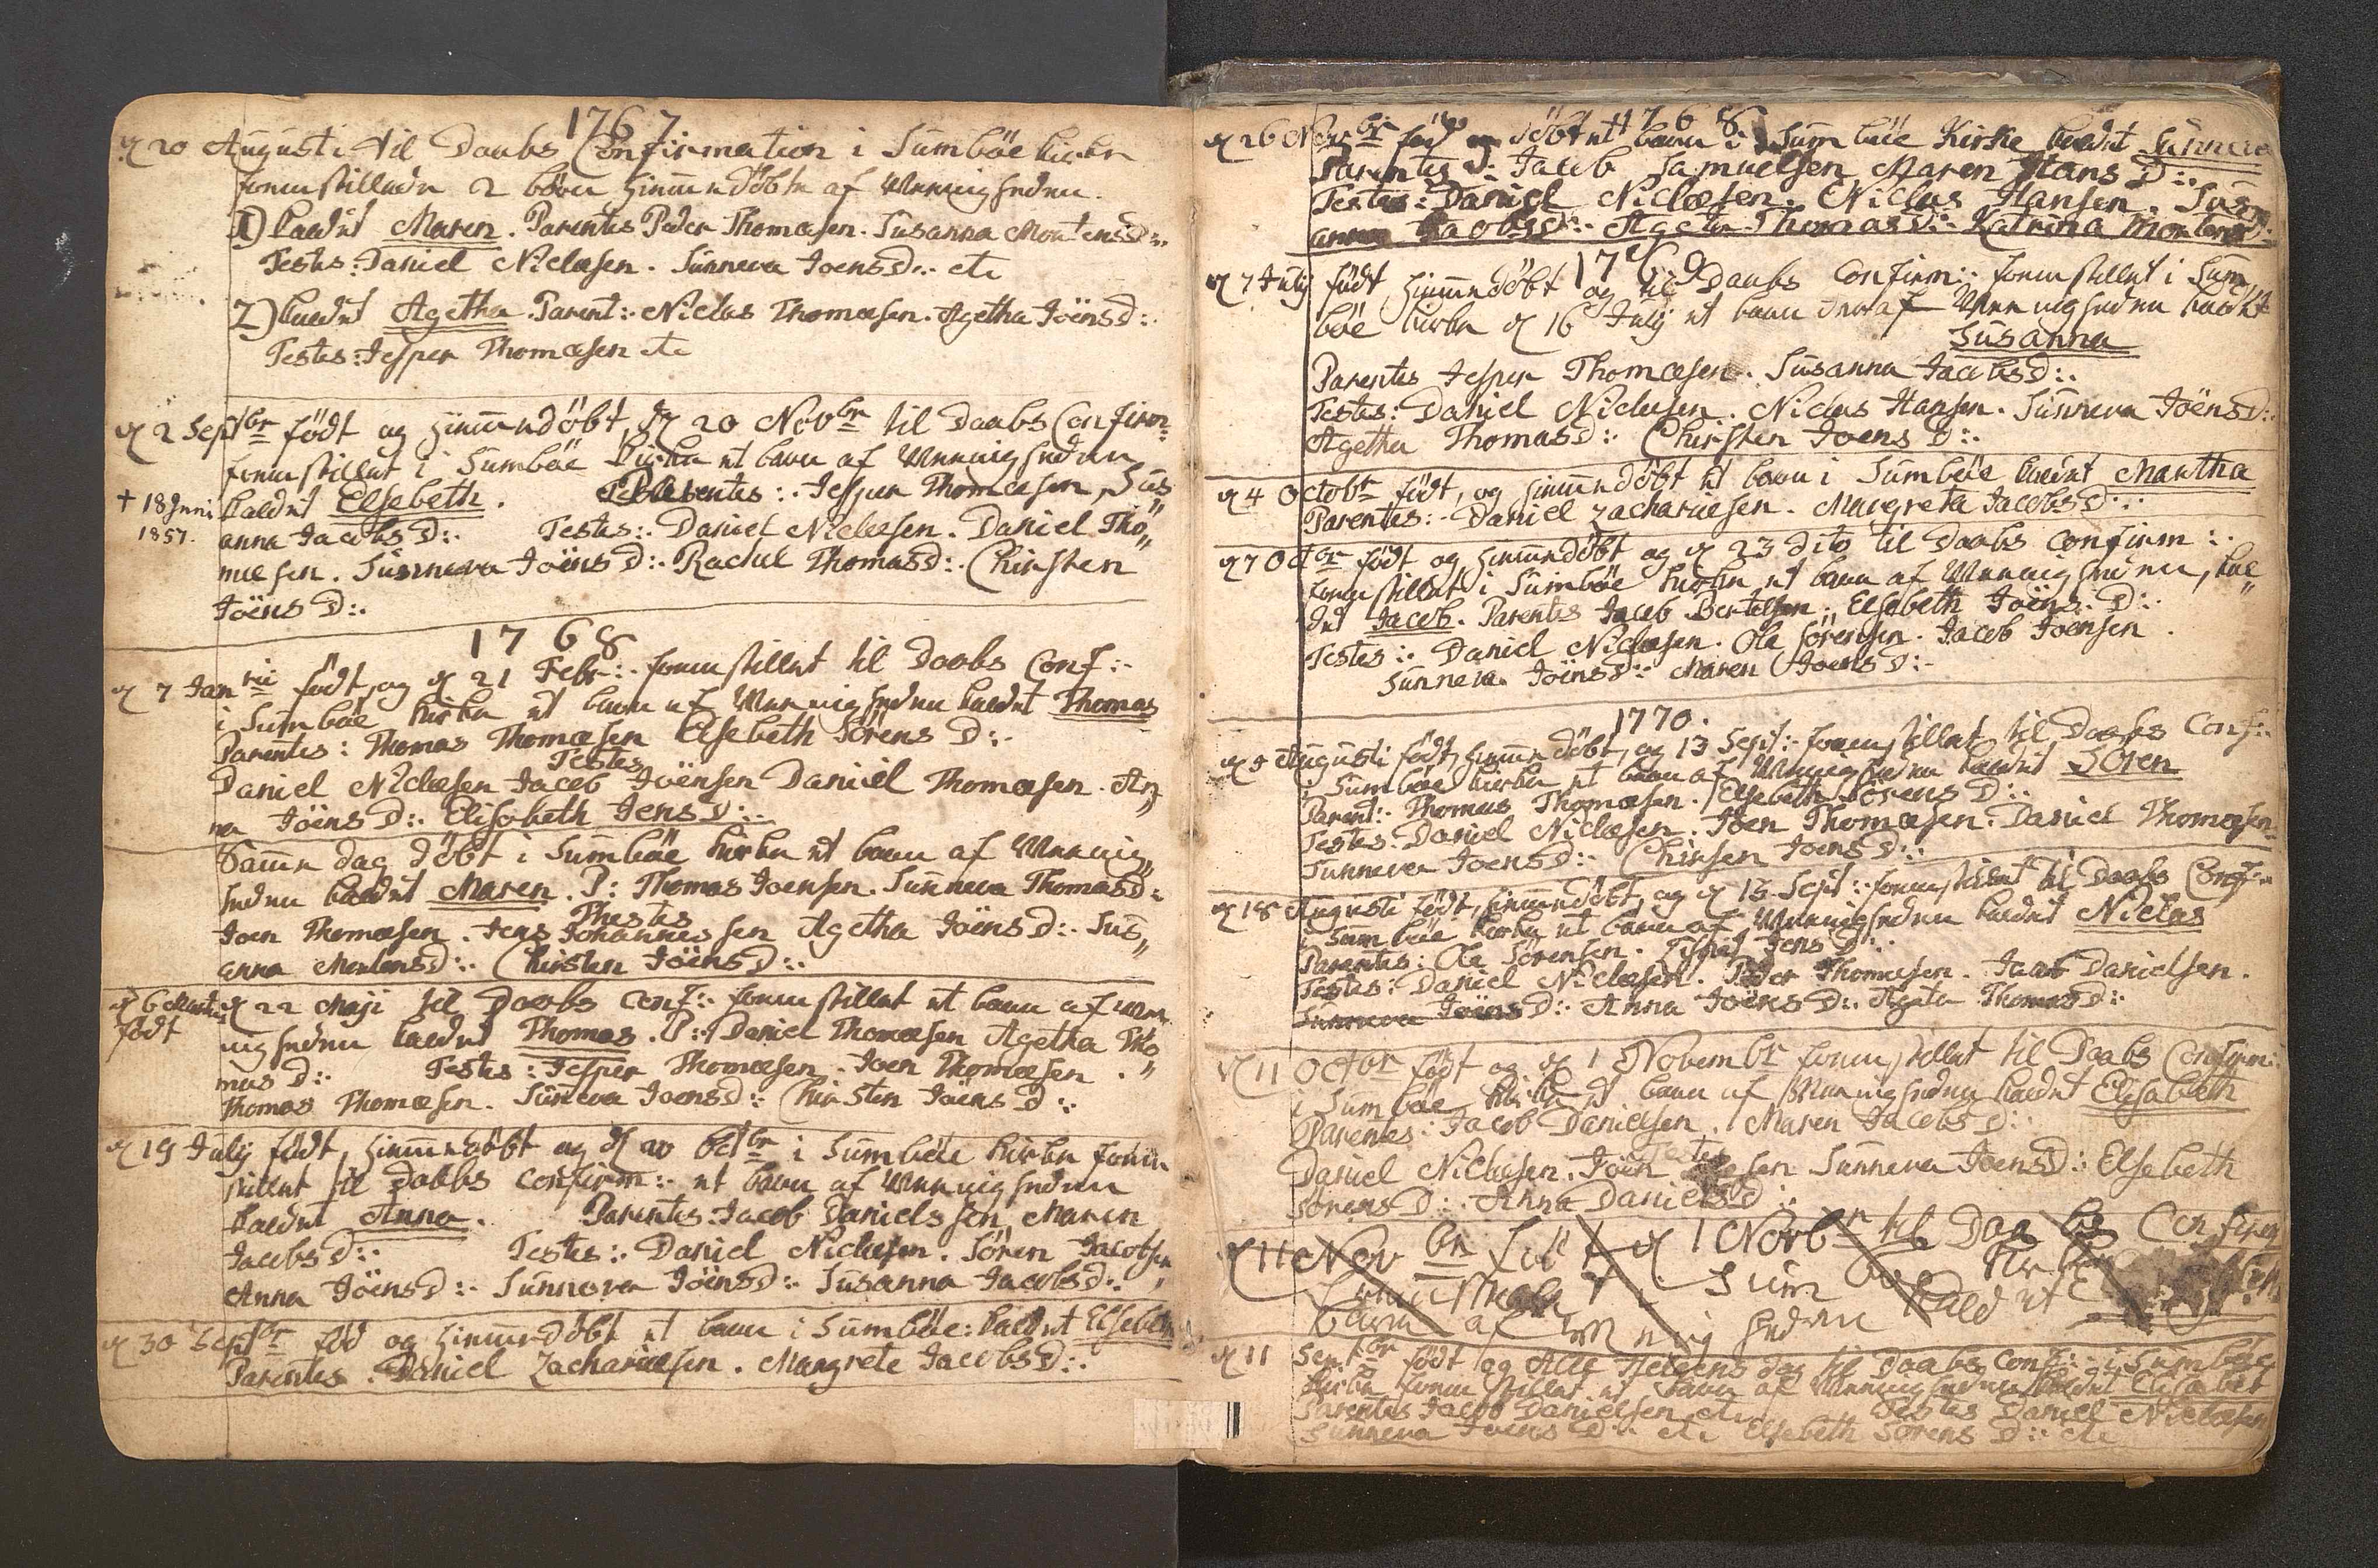 1767
d 20 Augusti til Daabs Confirmation i Sumböe kirke
fremstillede 2 börn hiemmedöbte af Menigheden.
1) kaldet Maren. Parentes Peder Thomæsen. Susanna MortensD:.
Testes: Daniel Niclæsen. Sunneva JoensD:. etc
2) kaldet Agetha. Parent:. Niclas Thomæsen. Agetha JöensD:.
Testes: Jesper Thomæsen etc
d 2 Septbr födt og hiemmedöbt, d 20 Novbr til Daabs Confirm:
fremstillet i Sumböe kirke et barn af Menigheden
† 18 Juni kaldet Elsebeth. Parentes:. Jesper Thomæsen, Sus„
1857. anna JacobsD:. Testes:. Daniel Niclæsen. Daniel Tho„
mæsen. Sunneva JöensD:. Rachel ThomasD:. Christen
JöensD:.
1768
d 7 Janrii födt, og d 21 Febr:. fremstillet til Daabs Conf:.
i Sumböe kirke et barn af Menigheden kaldet Thomas
Parentes: Thomas Thomæsen Elsebeth Sörens D:.
Testes
Daniel Niclæsen Jacob Joensen Daniel Thomæsen. An„
na Jöens D:. Elisabeth Jens D:.
Samme dag döbt i Sumböe kirke et barn af Menig„
heden kaldet Maren. P: Thomas Joensen. Sunneva ThomasD:
Thestes
Joen Thomæsen. Jens Johannessen Agetha JöensD:. Sus„
anna MortensD:. Christen JöensD:.
d 6 Martii d 22 Maji til Daabs Conf:. fremstillet et barn af Men
födt igheden kaldet Thomas. P:. Daniel Thomæsen Agetha Tho„
mas D:. Testes: Jesper Thomæsen. Joen Thomæsen.
Thomas Thomæsen. Sunneva JoensD:. Christen Jöens D:.
d 19 July födt, hiemmedöbt og d 20 Octbr i Sumböe kirke frem
stillet til Daabs Confirm:. et barn af Menigheden
kaldet Anna. Parentes: Jacob Danielssen, Maren
JacobsD:. Testes:. Daniel Niclæsen. Sören Jacobsen
Anna JöensD:. Sunneva JöensD:. Susanna JacobsD:.
d 30 Septbr föd og hiemmedöbt et barn i Sumböe: kaldet Elsebeth
Parentes. Daniel Zachariæsen. Margrete JacobsD:.
1768
d 26 Novbr föd og döbt et barn i Sumböe Kirke kaldet Sunneva
Parentes:. Jacob Samuelsen Maren Hans D:.
Testes: Daniel Niclæsen. Niclas Hansen. Sus„
anna JacobsD:. Ageta ThomasD:. Katrina MortensD:.
1769
d 7 July födt hiemmedöbt og til Daabs Confirm:. fremstillet i Sum
böe kirke d 16 July et barn deraf Menigheden kaldet
Susanna
Parentes Jesper Thomæsen. Susanna JacobsD:.
Testes: Daniel Niclæsen. Niclas Hansen. Sunneva JöensD:.
Agetha ThomasD:. Christen Joens D:.
d 4 Octobr födt, og hiemmedöbt et barn i Sumböe kaldet Martha
Parentes:. Daniel Zachariæsen. Margreta JacobsD:.
d 7 Octbr födt og hiemmedöbt og d 23 dito til Daabs Confirm:.
fremstillet i Sumböe kirke et barn af Menigheden, kal„
det Jacob. Parentes Jacob Bertelsen. Elsebeth Jöens D:.
Testes:. Daniel Niclæsen. Ole Sörensen. Jacob Joensen.
Sunneva JöensD:. Maren JoensD:.
1770.
d 5 Augusti födt, hiemmedöbt, og 13 Sept:. fremstillet til Daabs Conf:.
i Sumböe kirke et barn af Menigheden kaldet Sören
Parent:. Thomas Thomæsen. Elsebeth Sörens D:.
Testes: Daniel Niclæsen. Joen Thomæsen. Daniel Thomæsen.
Sunneva JoensD:. Chirsen JoensD:.
d 18 Augusti födt, hiemmedöbt, og d 13 Sept:. fremstillet til Daabs Conf:.
i Sumböe kirke et barn af Menigheden kaldet Niclas
Parentes: Ole Sörensen. Jens D:.
Testes: Daniel Niclæsen. Peder Thomæsen. Jacob Danielsen.
Sunneva JöensD:. Anna JöensD:. Agata ThomasD:.
d 11 Octbr födt og d 1 Novembr fremstillet til Daabs Confirm:
i Sumböe kirke et barn af Menigheden kaldet Elisabeth
Parentes: Jacob Danielsen. Maren JacobsD:.
Testes
Daniel Niclæsen. Joen sen Sunneva JoensD:. Elsebeth
SörensD:. Anna DanielsD:.
d 11 Novbr födt d 1 Novbr til Daabs Confirm
fremstillet i Sumböe kirke
barn af Menigheden kaldet
d 11 Septbr födt og Alle Helgens dag til Daabs Conf:. i Sumböe
kirke fremstillet et barn af Menigheden kaldet Elisabet
Parentes Jacob Danielsen etc Testes Daniel Niclæsen
Sunneva Joens D:. etc Elsebeth Sörens D:. etc